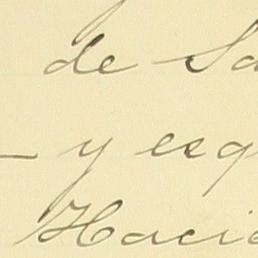 de Sa
y esq
Haci